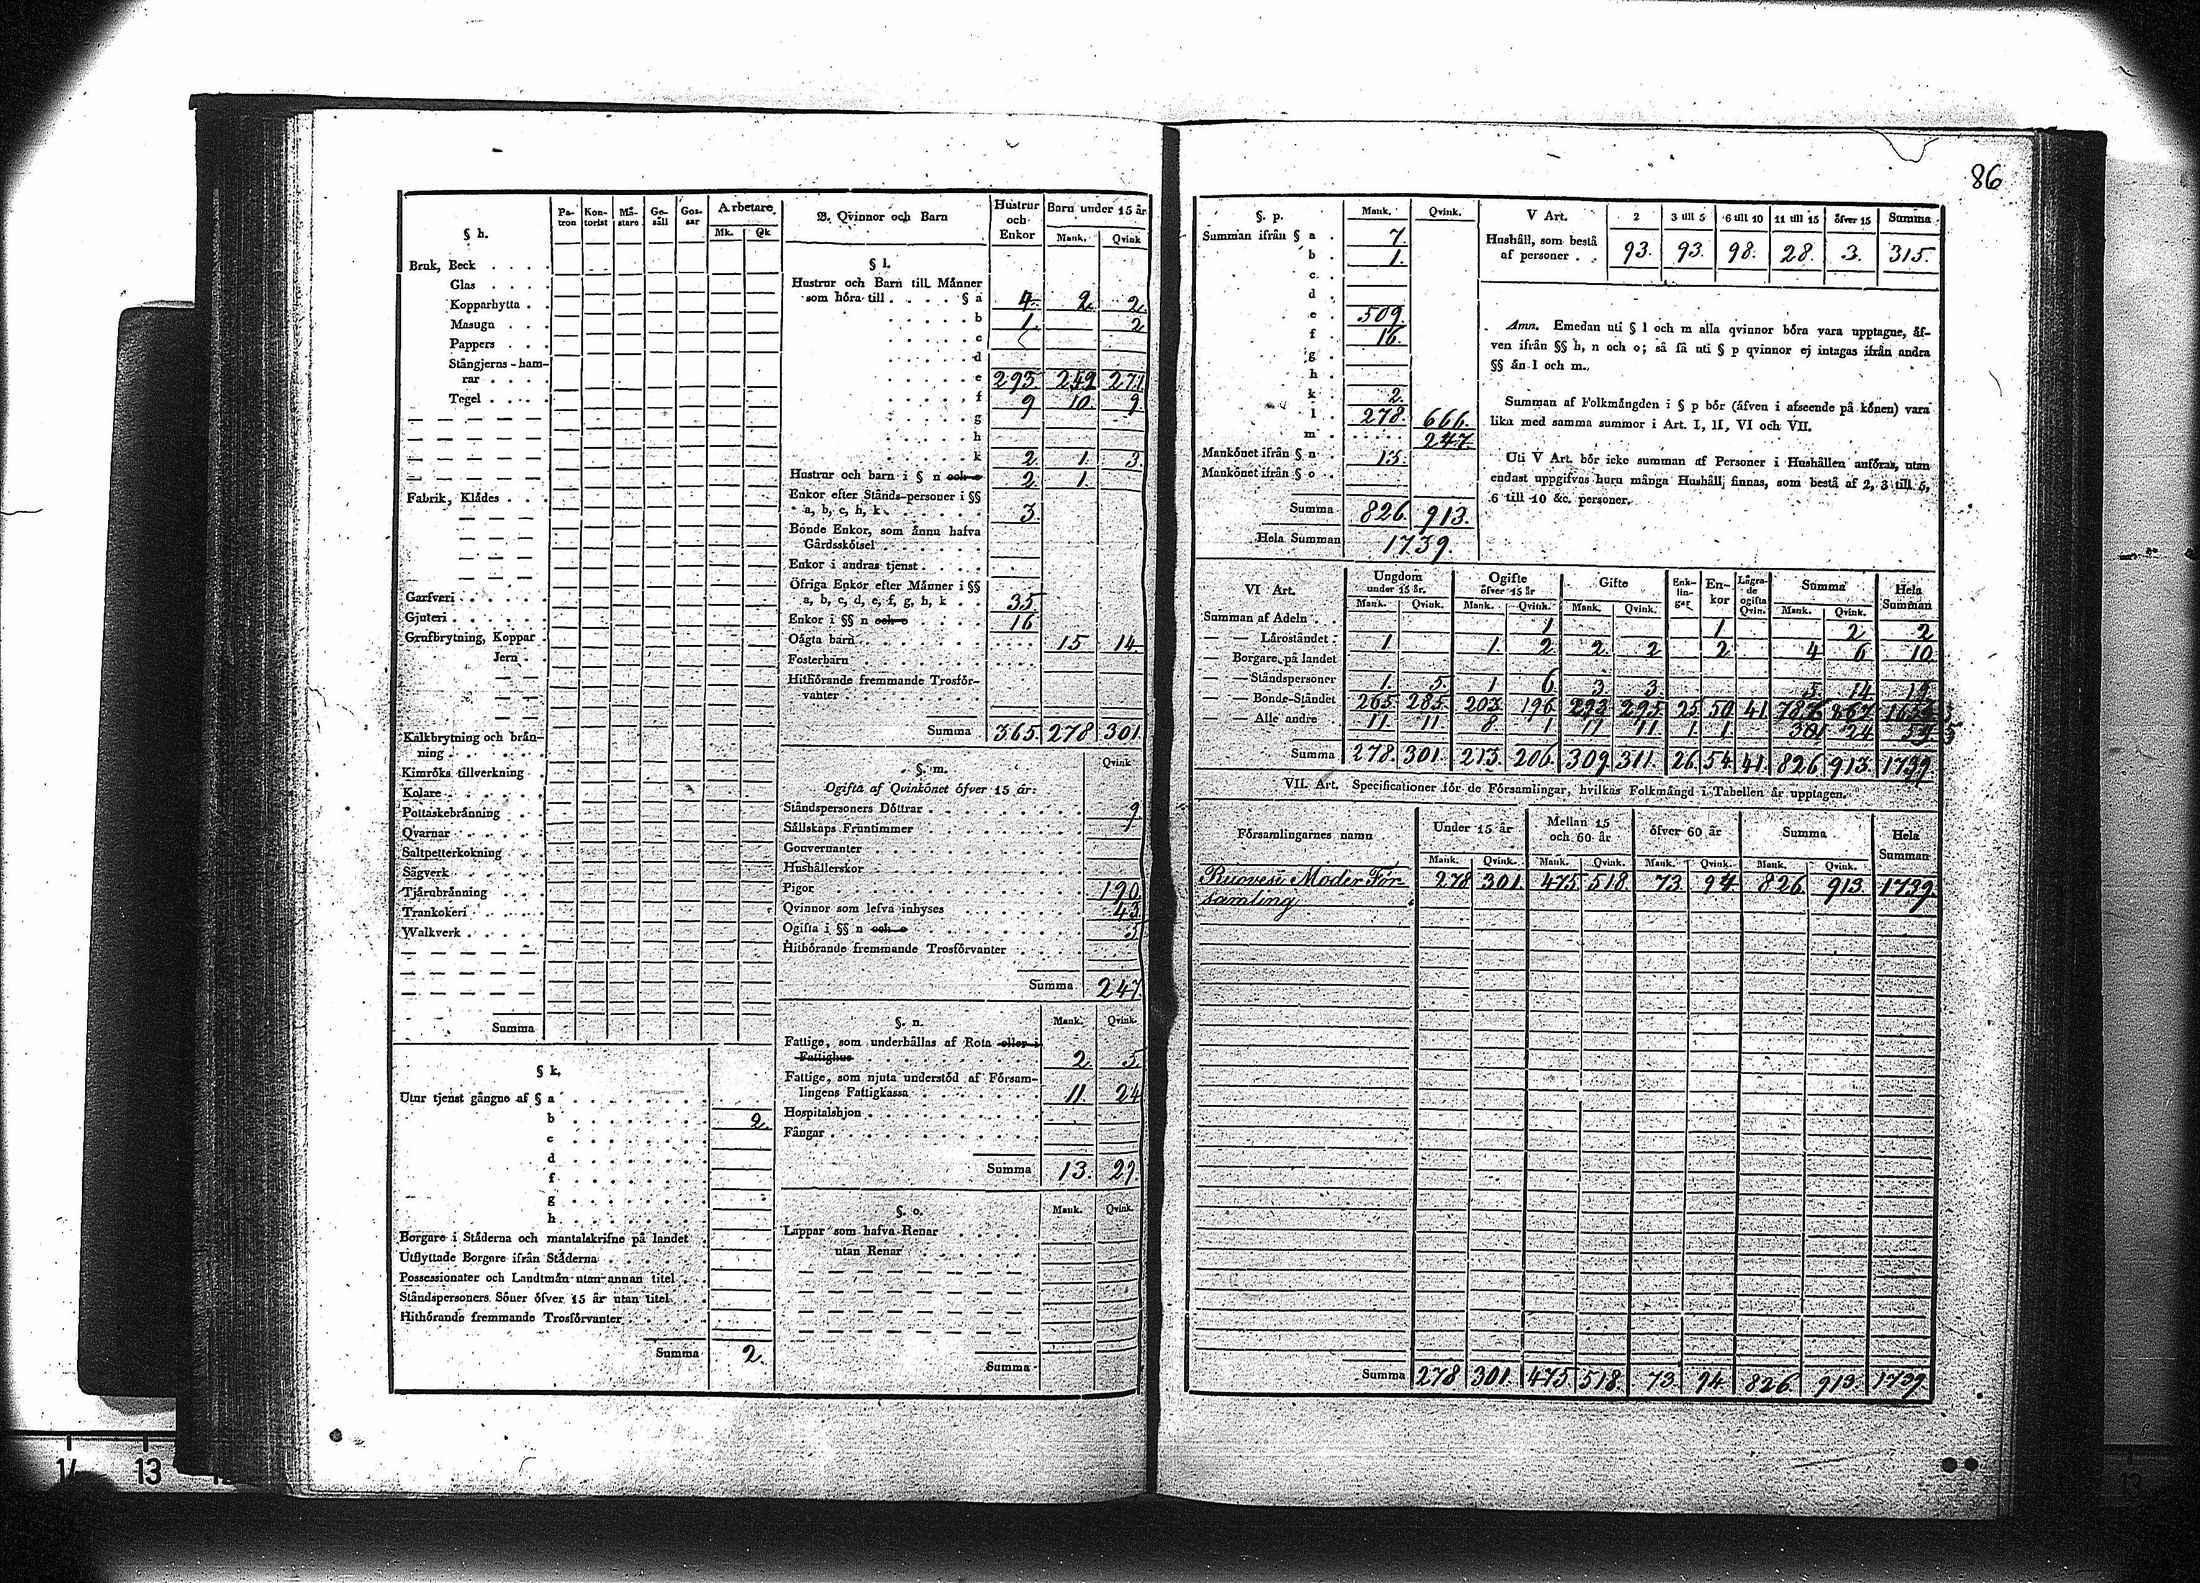 86
§ h.
Pa-tron Kon-torist Må-stare Ge-säll Gos-sar Arbetare
Mk. Qk
Bruk, Beck . . . .
Glas . . . .
Kopparhytta . .
Masugn . . .
Pappers . . .
Stångjerns-ham-
rar . . . .
Tegel . . . . .
Fabrik, Klådes . . .
Garfveri . . . . .
Gjuteri . . . . .
Grufbrytning, Koppar .
Jern . .
Kalkbrytning och brån-
ning . . . . .
Kimröks tillverkning .
Kolare . . . . . .
Pottaskebrånning . .
Qvarnar . . . . .
Saltpetterkokning . .
Sågverk . . . . .
Tjårubrånning . . .
Trankokeri . . . .
Walkverk . . . . .
Summa
§ k.
Utur tjenst gångne af § a . . . . . . .
b . . . . . . . 2.
c . . . . . . .
d . . . . . . .
f . . . . . . .
g . . . . . . .
h . . . . . . .
Borgare i Ståderna och mantalskrifne på landet .
Utflyttade Borgare ifrån Ståderna . . . . .
Possessionater och Landtmån utan annan titel . .
Ståndspersoners Söner öfver 15 år utan titel . .
Hithörande fremmande Trosförvanter . . . .
Summa 2.
B. Qvinnor och Barn
Hustrur och Enkor Barn under 15 år
Mank. Qvink
§ l.
Hustrur och Barn till Månner
som höra till . . . . . § a 4. 2. 2.
. . . . . b 1. 2
. . . . . c
. . . . . d
. . . . . e 293 242 271
. . . . . f 9 10. 9.
. . . . . g
. . . . . h
. . . . . k 2. 1. 3.
Hustrur och barn i § n och o 2. 1.
Enkor efter Stånds-personer i §§
a, b, c, h, k . . . . . . 3.
Bonde Enkor, som ånnu hafva
Gårdsskötsel . . . . . .
Enkor i andras tjenst . . . .
Öfriga Enkor efter Månner i §§
a, b, c, d, e, f, g, h, k . . 35
Enkor i §§ n och o . . . . . 16
Oågta barn . . . . . . . 15 14.
Fosterbarn . . . . . . .
Hithörande fremmande Trosför-
vanter . . . . . . .
Summa 365. 278 301
§. m. Qvink
Ogifta af Qvinkönet öfver 15 år:
Ståndspersoners Döttrar . . . . . . . 9
Sållskaps Fruntimmer . . . . . . .
Gouvernanter . . . . . . .
Hushållerskor . . . . . . .
Pigor . . . . . . . 190
Qvinnor som lefva inhyses . . . . . . . 43
Ogifta i §§ n och o . . . . . . .
Hithörande fremmande Trosförvanter . . . .
Summa 247
§. n. Mank. Qvink.
Fattige, som underhållas af Rota eller i
Fattighus . . . . . . . 2. 5.
Fattige, som njuta understöd af Försam-
lingens Fattigkassa . . . . . . 11 24
Hospitalshjon . . . . . . .
Fångar . . . . . . .
Summa 13. 29.
§. o. Mank. Qvink.
Lappar som hafva Renar . . . .
utan Renar . . . .
Summa
§. p. Mank. Qvink.
Summan ifrån § a . 7.
b . 1.
c .
d .
e . 509.
f . 16.
g .
h .
k . 2.
l . 278. 666.
m . 247.
Mankönet ifrån § n . 13.
Mankönet ifrån § o . .
Summa 826. 913.
Hela Summan 1739.
V Art. 2 3 till 5 6 till 10 11 till 15 öfver 15 Summa
Hushåll, som bestå
af personer . . 93. 93. 98. 28. 3. 315.
Anm. Emedan uti § l och m alla qvinnor böra vara upptagne, åf-
ven ifrån §§ h, n och o; så få uti § p qvinnor ej intagas ifrån andra
§§ ån l och m.
Summan af Folkmångden i § p bör (åfven i afseende på könen) vara
lika med samma summor i Art. I, II, VI och VII.
Uti V Art. bör icke summan af Personer i Hushållen anföras, utan
endast uppgifvas huru många Hushåll finnas, som bestå af 2, 3 till 5,
6 till 10 &c. personer.
VI Art. Ungdom under 15 år. Ogifte öfver 15 år Gifte Enk-lin-gar En-kor Lågra-de ogifta Qvin. Summa Hela Summan
Mank. Qvink. Mank. Qvink. Mank. Qvink. Mank. Qvink.
Summan af Adeln . . 1 1 2 2
— — Låroståndet . 1 1. 2 2. 2 2 4 6 10
— — Borgare på landet
— — Ståndspersoner 1. 5. 1 6 3 3 5 14 19
— — Bonde-Ståndet 265 285 203 196 293 295 25 50 41
— — Alle andre . 11 11 8 1 11 11 1. 1 24
Summa 278. 301. 213. 206. 309 311. 26. 54. 41. 826 913. 1739.
VII. Art. Specificationer för de Församlingar, hvilkas Folkmångd i Tabellen år upptagen.
Församlingarnes namn Under 15 år Mellan 15 och 60 år öfver 60 år Summa Hela Summan
Mank. Qvink. Mank. Qvink. Mank. Qvink. Mank. Qvink.
Ruovesi Moder För- 278 301. 475 518. 73. 94 826. 913. 1739.
samling
Summa 278 301. 475 518. 73. 94. 826. 913. 1739
14 13
13